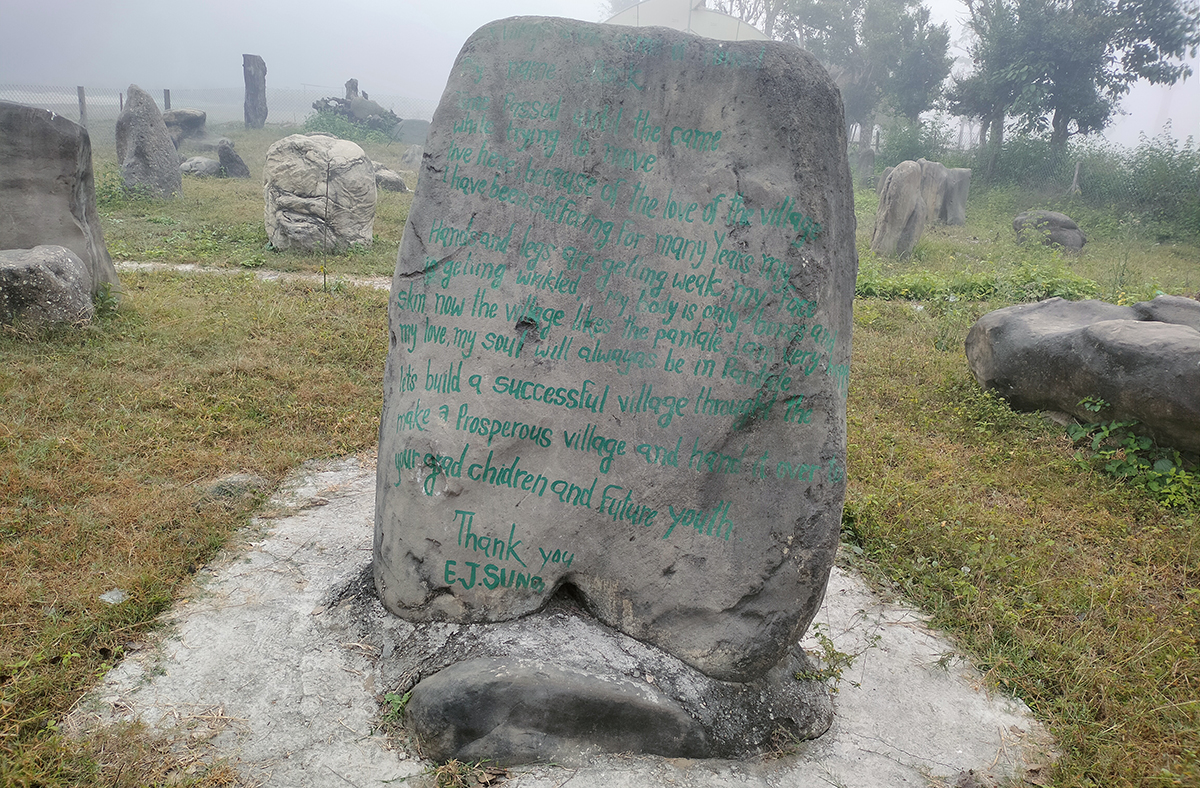 My name
Passed until the came
while trying to move
live here because of the love of the village
I have been suffering for many Years my
Hands and legs are geting weak my face
is geting wrinkled my body is only bones and
skin now the village likes the pantale I am very
my love, my soul will always be in
lets build a successful village through the
make a Prosperous village and hand it over to
your grad chidren and Future youth
Thank you
E.J.SUNG